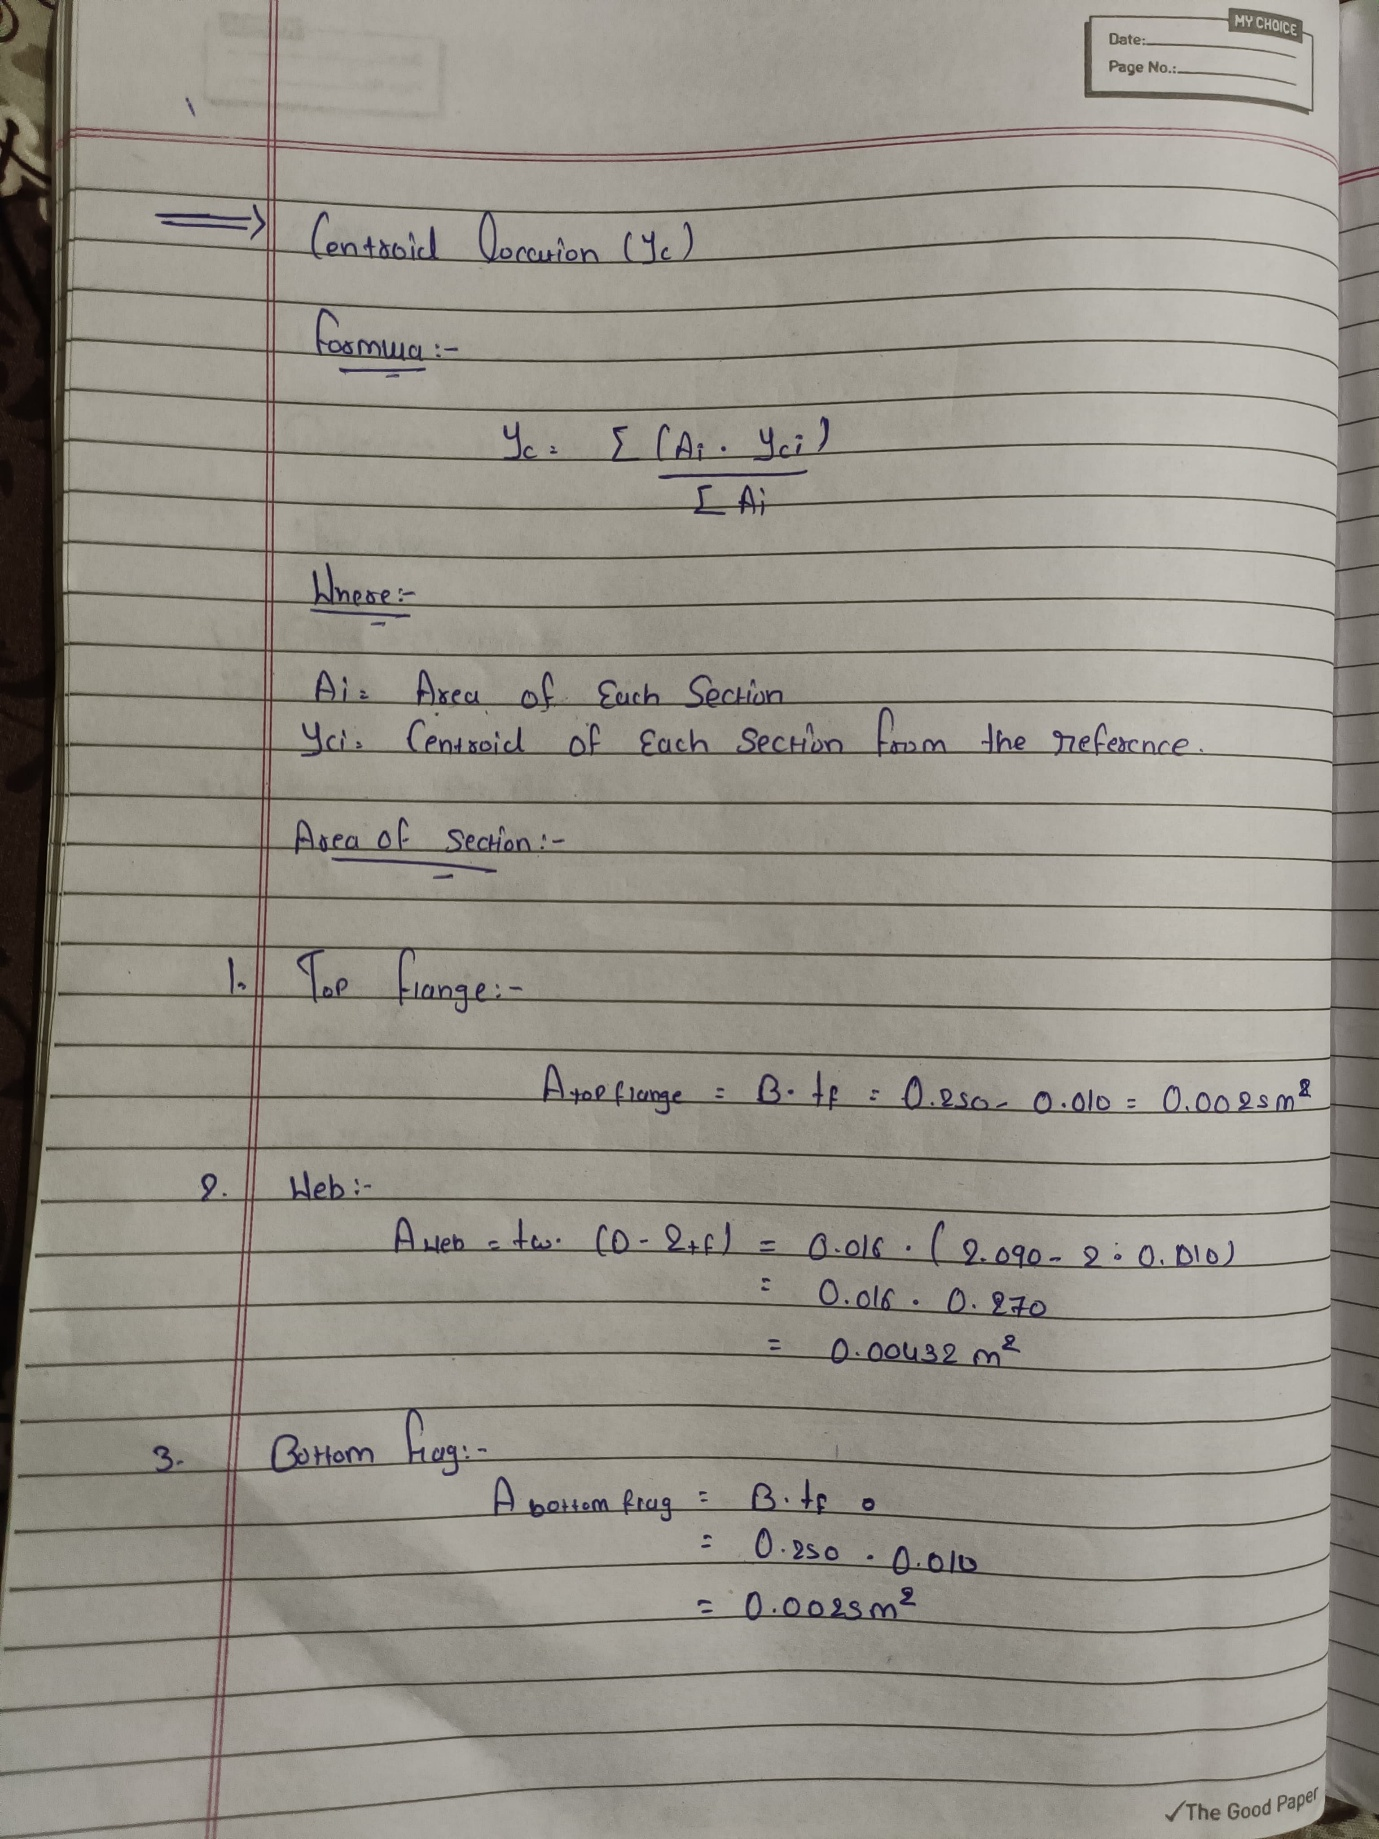 MY CHOICE
Date:
Page No.:
Centroid Location (yc)
Formula :-
yc = Σ (Ai . yci)
Σ Ai
Where :-
Ai = Area of Each Section
yci = Centroid of Each Section from the reference.
Area of section :-
1. Top flange :-
A top flange = B. tf = 0.250 - 0.010 = 0.0025 m²
2. Web :-
A web = tw. (D - 2tf) = 0.016 . ( 2.090 - 2 . 0.010)
= 0.016 . 0.270
= 0.00432 m²
3. Bottom flag :-
A bottom flag = B. tf .
= 0.250 . 0.010
= 0.0025 m²
✓The Good Paper